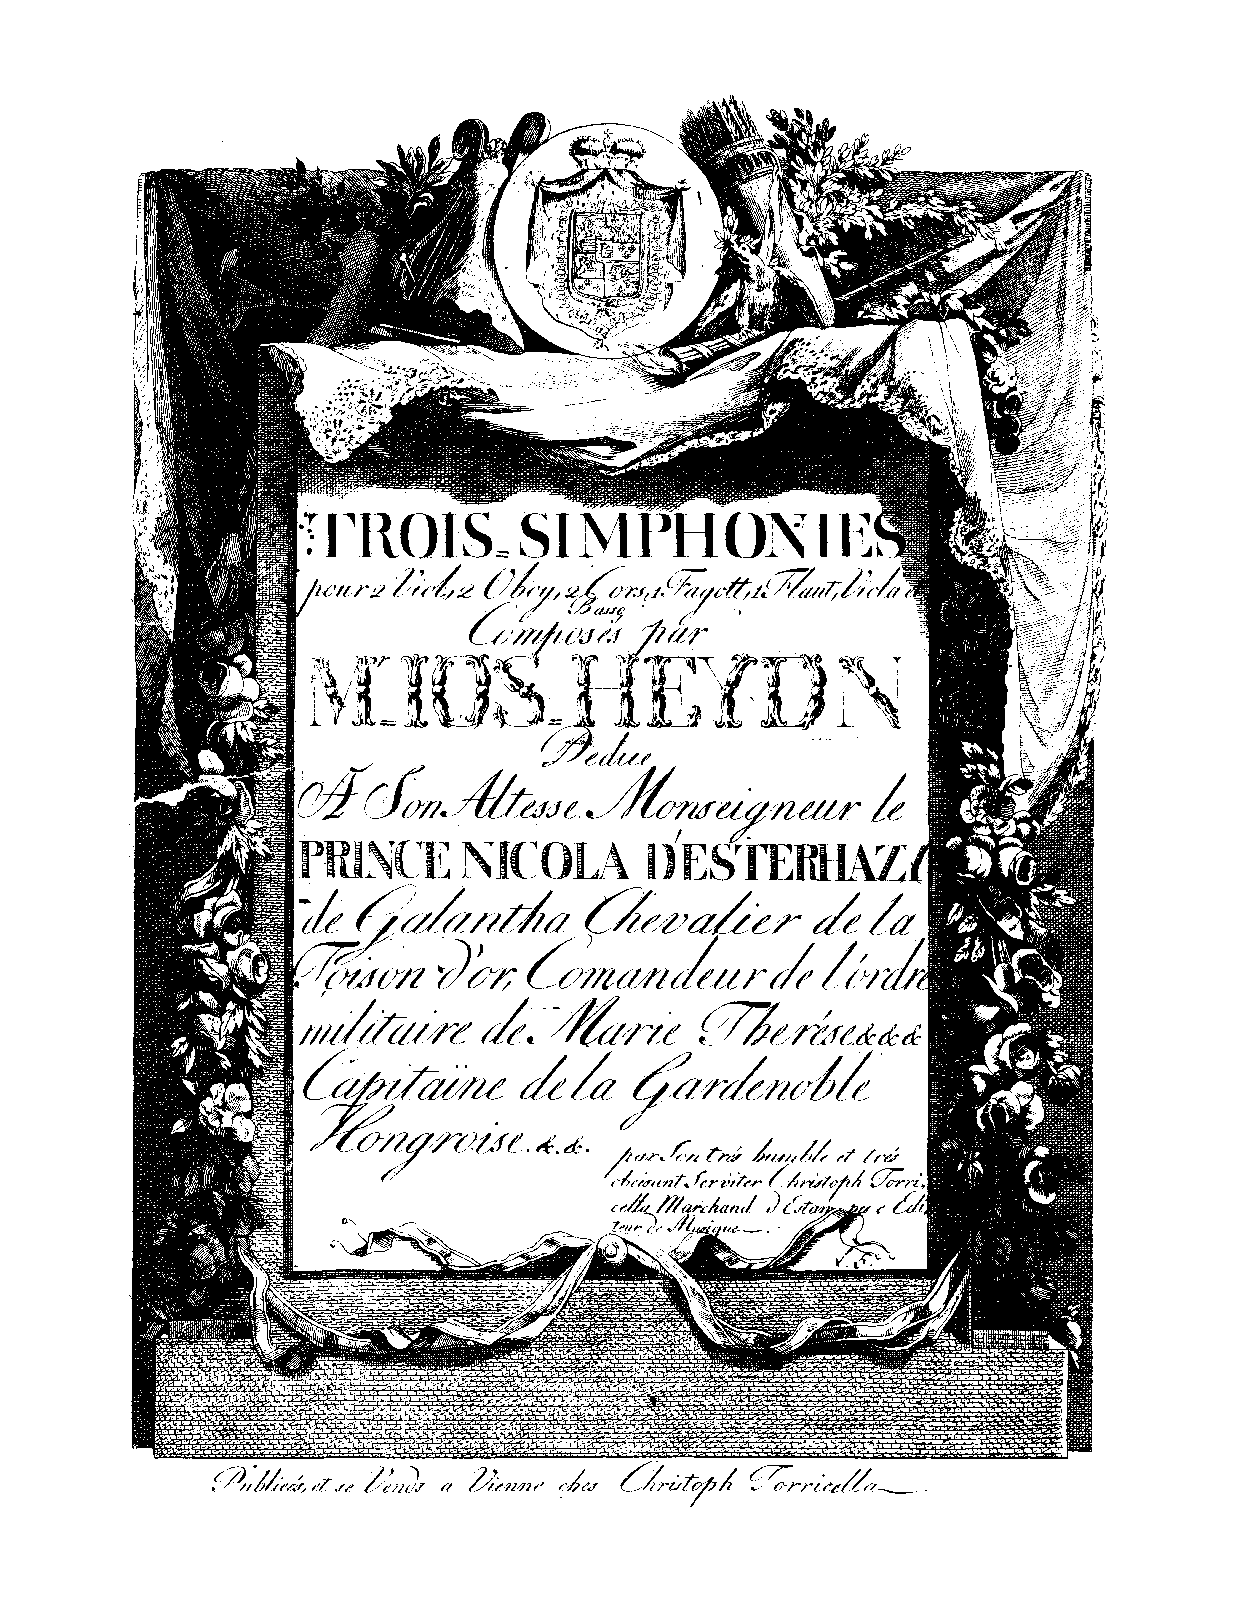 TROIS=SIMPHONIES
pour 2 Viol, 2 Oboy, 2 Cors, 1 Fagott, 1 Flaut, Viola
Basse
Composés par
M.R=IOS=HEYDN
Dediee
A Son Altesse Monseigneur le
PRINCE NICOLA D'ESTERHAZI
de Galantha Chevalier de la
Toison d'or, Comandeur de l'ordre
militaire de Marie Therése &&&
Capitaïne de la Gardenoble
Hongroise. &. &.
par Son trés humble et trés
obeisant Serviter Christoph Torri,
cella Marchand d'Estampes e Edi,
teur de Musique
Publiées, et se Vends a Vienne ches Christoph Torricella